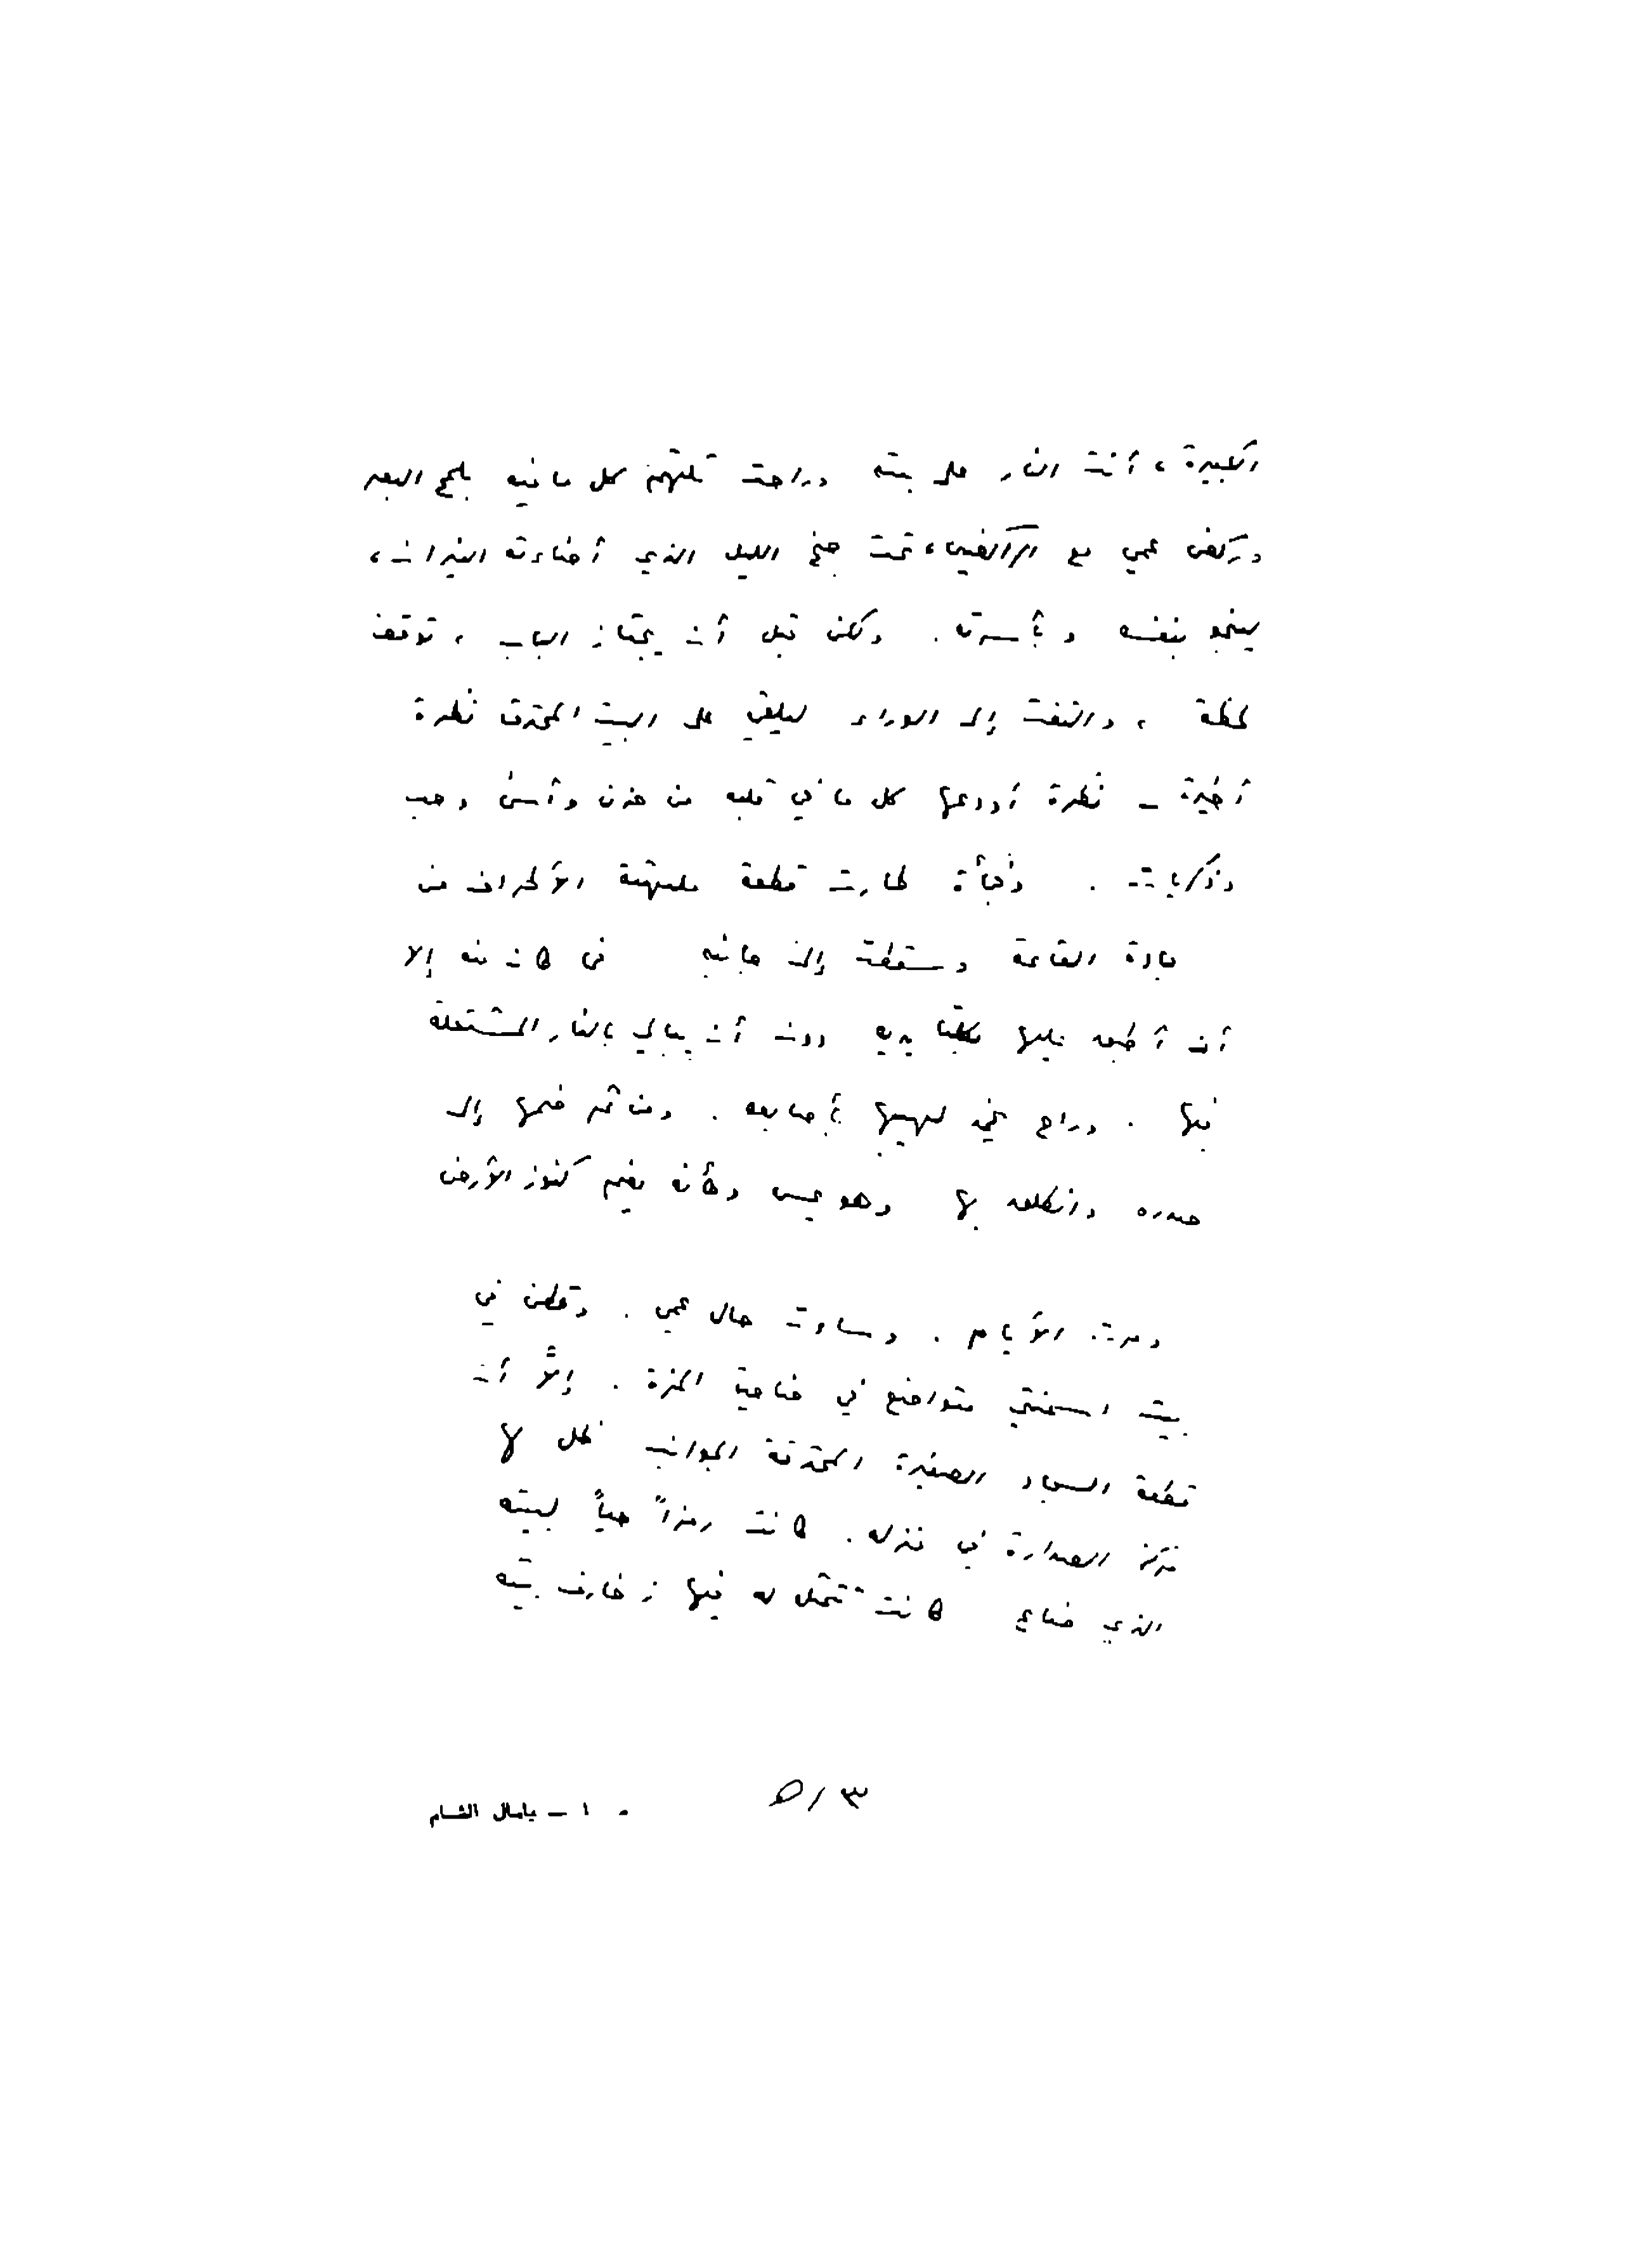 الكبيرة ، أتت النار على بيته وراحت تلتهم كل ما فيه بلمح البصر
وتركض عمي مع الراكضين ، تحت جنح الليل الذي أضاءته النيران ،
لينجو بنفسه وبأسرته . ولكن قبل أن يجتاز الباب ، توقف
لحظة ، والتفت إلى الوراء ليلقي على البيت المحترق نظرة
أخيرة - نظرة أودعها كل ما في قلبه من حزن وأسىً وحب
وذكريات . وفجأة طارت قطعة ملتهبة الأطراف من
سجادة القاعة وسقطت إلى جانبه فما كان منه إلا
أن أطبق عليها بكلتا يديه دون أن يبالي بالنار المشتعلة
فيها . وراح لهيبها بأصابعه . ومن ثم ضمها إلى
صدره وانطلق بها وهو يحس وكأنه يضم كنوز الأرض
ومرت الأيام . وساءت حال عمي . وقطن في
بيت اسمنتي متواضع في ضاحية المزة . إلاَّ أن
قطعة السجاد الصغيرة المحترقة الجوانب ظل لها
مركز الصدارة في منزله . كانت رمزاً حياً لبيته
الذي ضاع كانت تتمثل له فيها زخارف بيته
٣ / ٥
١٠ - يامال الشام